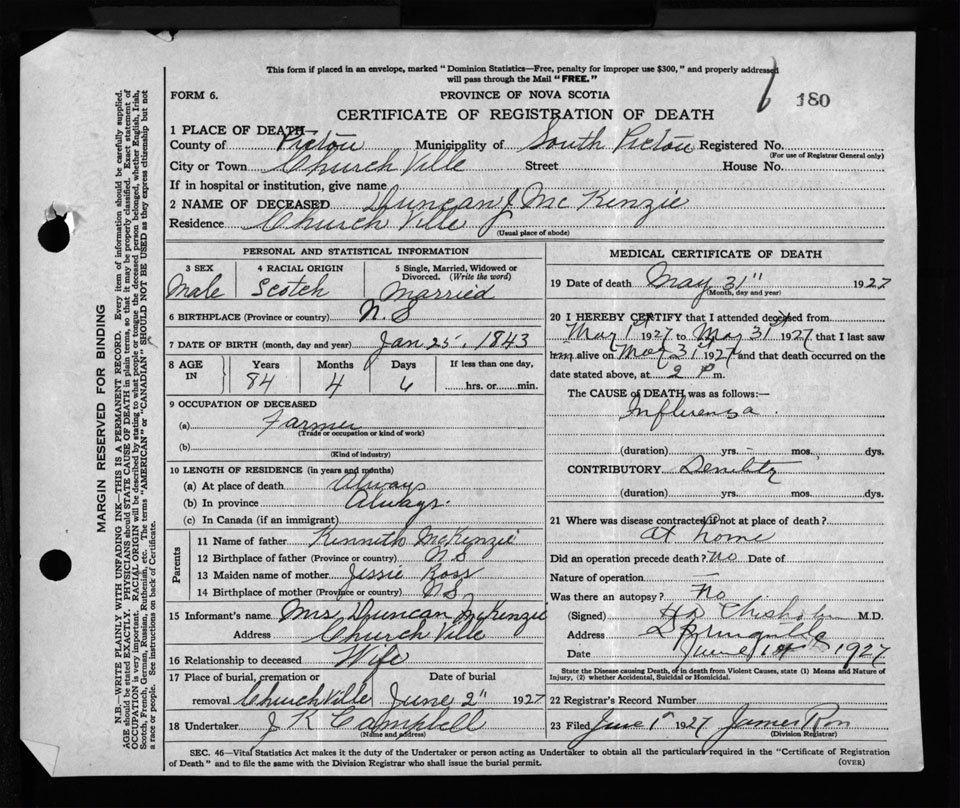 This form if placed in an envelope, marked "Dominion Statistics—Free, penalty for improper use $300," and properly addressed
will pass through the Mail "FREE."
FORM 6.
PROVINCE OF NOVA SCOTIA
180
CERTIFICATE OF REGISTRATION OF DEATH
1 PLACE OF DEATH
County of Pictou Municipality of South Pictou Registered No.
(For use of Registrar General only)
City or Town Church Ville Street House No.
If in hospital or institution, give name
2 NAME OF DECEASED Duncan J McKenzie
Residence Church Ville
(Usual place of abode)
PERSONAL AND STATISTICAL INFORMATION
3 SEX 4 RACIAL ORIGIN 5 Single, Married, Widowed or
Divorced. (Write the word)
Male Scotch Married
6 BIRTHPLACE (Province or country) N.S
7 DATE OF BIRTH (month, day and year) Jan 25, 1843
8 AGE IN Years Months Days If less than one day,
84 4 6 hrs. or min.
9 OCCUPATION OF DECEASED
(a) Farmer
(Trade or occupation or kind of work)
(b)
(Kind of industry)
10 LENGTH OF RESIDENCE (in years and months)
(a) At place of death Always
(b) In province Always.
(c) In Canada (if an immigrant)
Parents
11 Name of father Kinnith McKenzie
12 Birthplace of father (Province or country) N S
13 Maiden name of mother Jessie Ross
14 Birthplace of mother (Province or country) N S
15 Informant's name Mrs Duncan McKenzie
Address Church Ville
16 Relationship to deceased Wife
17 Place of burial, cremation or Date of burial
removal Church Ville June 2" 1927
18 Undertaker J K Campbell
(Name and address)
MEDICAL CERTIFICATE OF DEATH
19 Date of death May 31" 1927
(Month, day and year)
20 I HEREBY CERTIFY that I attended deceased from
May 1st 1927 to May 31st 1927 that I last saw
him alive on May 31st 1927 and that death occurred on the
date stated above, at 2 P m.
The CAUSE of DEATH was as follows:—
Influensa.
(duration) yrs. mos. dys.
CONTRIBUTORY Senility
(duration) yrs. mos. dys.
21 Where was disease contracted if not at place of death?
At home
Did an operation precede death? No Date of
Nature of operation —
Was there an autopsy? No
(Signed) Chisholm M.D.
Address Springville
Date June 1st 1927
State the Disease causing Death, or in death from Violent Causes, state (1) Means and Nature of
Injury, (2) whether Accidental, Suicidal or Homicidal.
22 Registrar's Record Number
23 Filed June 1st 1927 James Ross
(Division Registrar)
SEC. 46—Vital Statistics Act makes it the duty of the Undertaker or person acting as Undertaker to obtain all the particulars required in the "Certificate of Registration
of Death" and to file the same with the Division Registrar who shall issue the burial permit. (OVER)
MARGIN RESERVED FOR BINDING
N.B.—WRITE PLAINLY WITH UNFADING INK—THIS IS A PERMANENT RECORD. Every item of information should be carefully supplied.
AGE should be stated EXACTLY. PHYSICIANS should STATE CAUSE OF DEATH in plain terms, so that it may be properly classified. Exact statement of
OCCUPATION is very important. RACIAL ORIGIN will be described by stating to what people or tongue the deceased person belonged, whether English, Irish,
Scotch, French, German, Russian, Ruthenian, etc. The terms "AMERICAN" or "CANADIAN" SHOULD NOT BE USED as they express citizenship but not
a race or people. See instructions on back of Certificate.